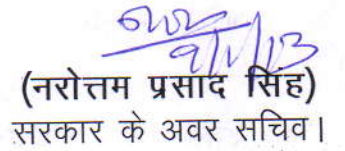 9/1/13
(नरोत्तम प्रसाद सिंह)
सरकार के अवर सचिव।